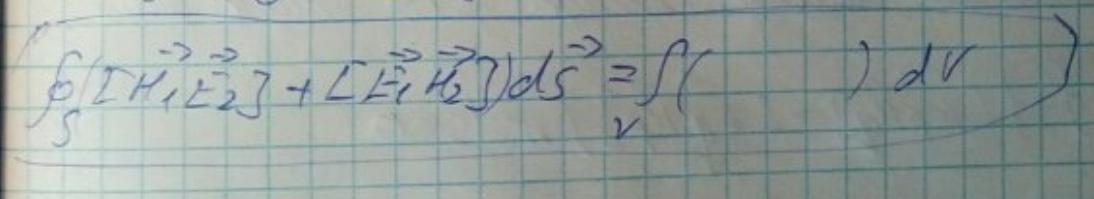 ∮_S ([H⃗₁E⃗₂] + [E⃗₁H⃗₂])dS⃗ = ∫_V ( ) dV